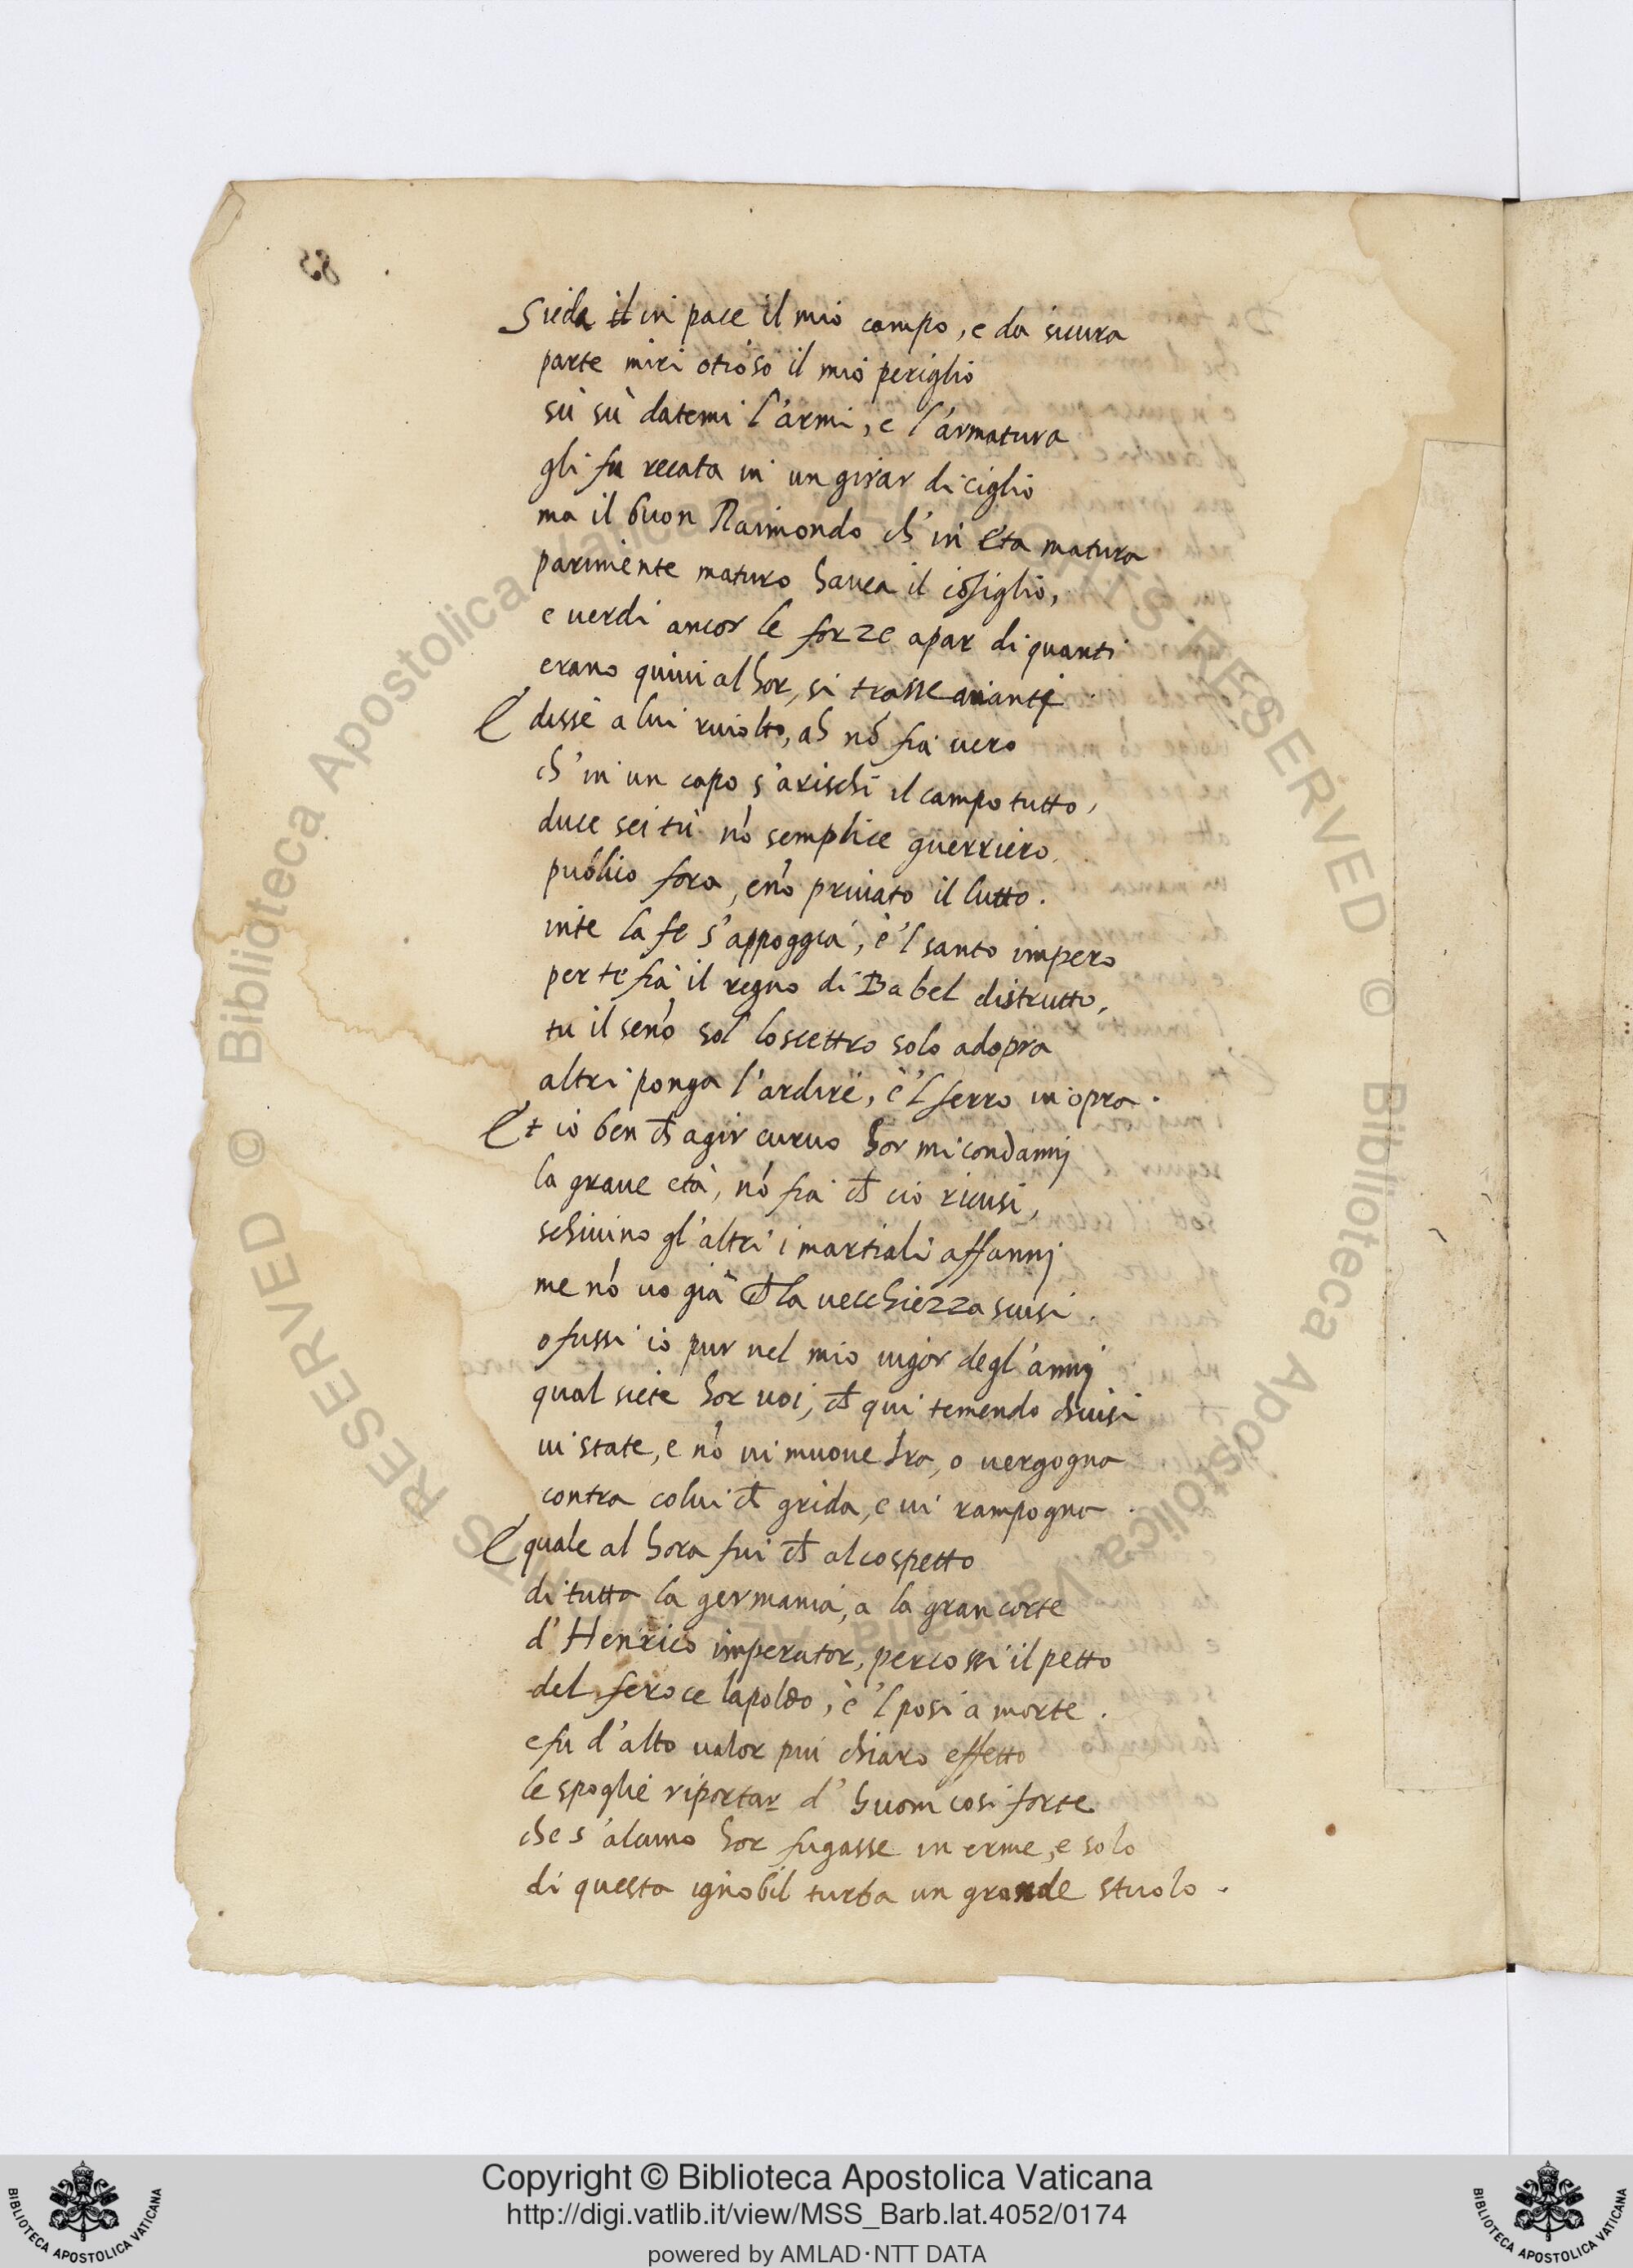 Sieda il in pace il mio campo, e da sicura
parte miri otioso il mio periglio
sù sù datemi l'armi, e l'armatura
gli fu recata in un girar di ciglio
ma il buon Raimondo ch' in età matura
parimente maturo havea il cōsiglio,
e verdi ancor le forze apar di quanti
erano quivi al hor, si trasse avanti
E disse a lui rivolto, ah nō fia vero
ch' in un capo s'arischi il campo tutto,
duce sei tù nō semplice guerriero
publico fora, e nō privato il lutto.
inte la fe s'appoggia, e 'l santo impero
per te fia il regno di Babel distrutto,
tu il señō sol lo scettro solo adopra
altri ponga l'ardire, e 'l ferro in opra.
Et io ben ch̄ a gir curvo hor mi condannj
la grave età, nō fia ch̄ ciò ricusi,
schivino gl'altri i martiali affannj
me nō vo già ch̄ la vecchiezza scusi.
o fussi io pur nel mio vigor degl'annj
qual siete hor voi, ch̄ qui temendo chiusi
vi state, e nō vi muove Ira, o vergogna
contra colui ch̄ grida, e vi rampogna.
E quale al hora fui ch̄ al cospetto
di tutta la germania, a la gran corte
d'Henrico imperator, percossi il petto
del feroce lapoldo, e 'l posi a morte.
e fu d'alto valor piu chiaro effetto
le spoglie riportar d'huom cosi forte
che s'alcuno hor fugasse in erme, e solo
di questa ignobil turba un grande stuolo.
© Biblioteca Apostolica Vaticana
RESERVED
Copyright © Biblioteca Apostolica Vaticana
http://digi.vatlib.it/view/MSS_Barb.lat.4052/0174
powered by AMLAD·NTT DATA
BIBLIOTECA APOSTOLICA VATICANA
BIBLIOTECA APOSTOLICA VATICANA